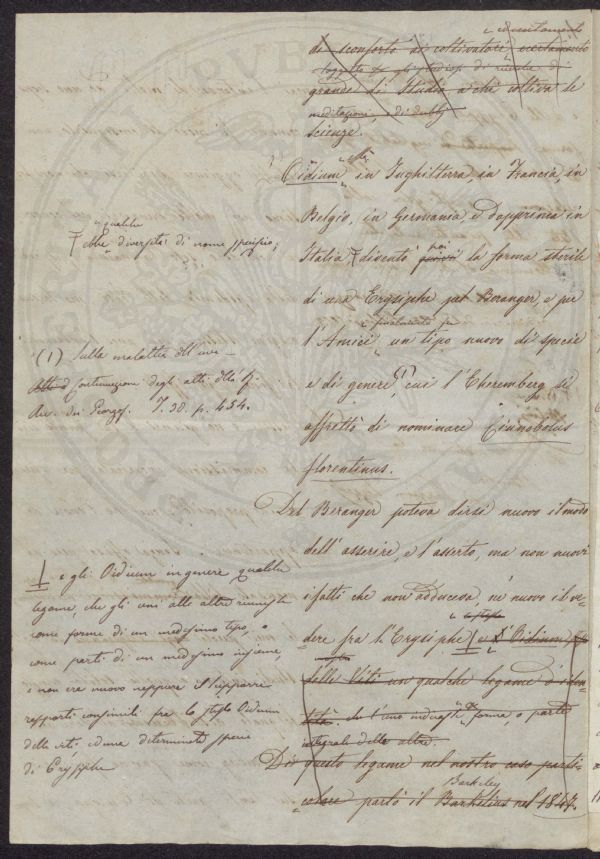 certamente
di sconforto ai coltivatori certamente
soggetto per gli studiosi di ricerche di
grande di studio a chi coltiva le
meditazioni e di dubbj
scienze.
Oidium in Inghilterra, in Francia, in
Belgio, in Germania, e dapprima in
Italia, diventò poi la forma sterile
di una Erysiphe pel Beranger, e per
finalmente per
l'Amici un tipo nuovo di specie
e di genere (1), cui l'Eheremberg si
affrettò di nominare Cinnobolus
florentinus.
Del Beranger poteva dirsi nuovo il modo
dell'asserire, e l'asserto, ma non nuovi
i fatti che non adduceva, nè nuovo il ve-
dere fra l'Erysiphe e l'Oidium
delle Viti un qualche legame o iden-
tità, che l'uno sia forma, o parte
integrale delle altre.
Di questo legame nel nostro caso parti-
Barkeley
colare parlò il Barkelius nel 1847.
qualche
ebbe diversità di nome specifico;
(1) Sulla malattia dell'uva –
Continuazione degli atti della
dei Georgof. T. 30. p. 454.
e gli Oidium in genere qualche
legame, che gli uni alle altre riunisse
come forme di un medesimo tipo, o
come parti di un medesimo insieme,
e non era nuovo neppure il supporre
rapporti consimili fra lo stesso Oidium
delle viti, ed una determinata specie
di Erysiphe